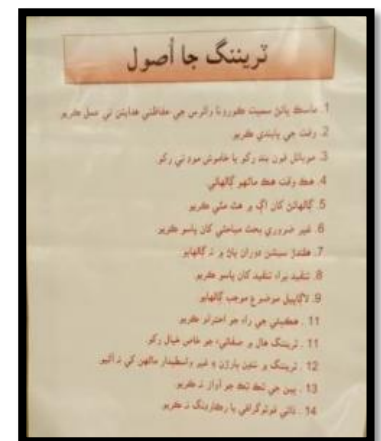 ٽريننگ جا اُصول
1. ماسڪ پائڻ سميت ڪورونا وائرس جي حفاظتي هدايتن تي عمل ڪريو
2. وقت جي پابندي ڪريو
3. موبائل فون بند رکو يا خاموش موڊ تي رکو.
4. هڪ وقت هڪ ماڻهو ڳالهائي.
5. ڳالهائڻ کان اڳ ۾ هٿ مٿي ڪريو
6. غير ضروري بحث مباحثي کان پاسو ڪريو
7. هلندڙ سيشن دوران پاڻ ۾ نہ ڳالهايو
8. تنقيد براءِ تنقيد کان پاسو ڪريو.
9. لاڳاپيل موضوع موجب ڳالهايو
11. هڪٻئي جي راءِ جو احترام ڪريو.
11. ٽريننگ هال ۾ صفائيءَ جو خاص خيال رکو.
12. ٽريننگ ۾ ننڍن ٻارڙن ۽ غير واسطيدار ماڻهن کي نہ آڻيو
13. پين جي ٽڪ ٽڪ جو آواز نہ ڪريو.
14. ذاتي فوٽوگرافي يا رڪارڊنگ نہ ڪريو.